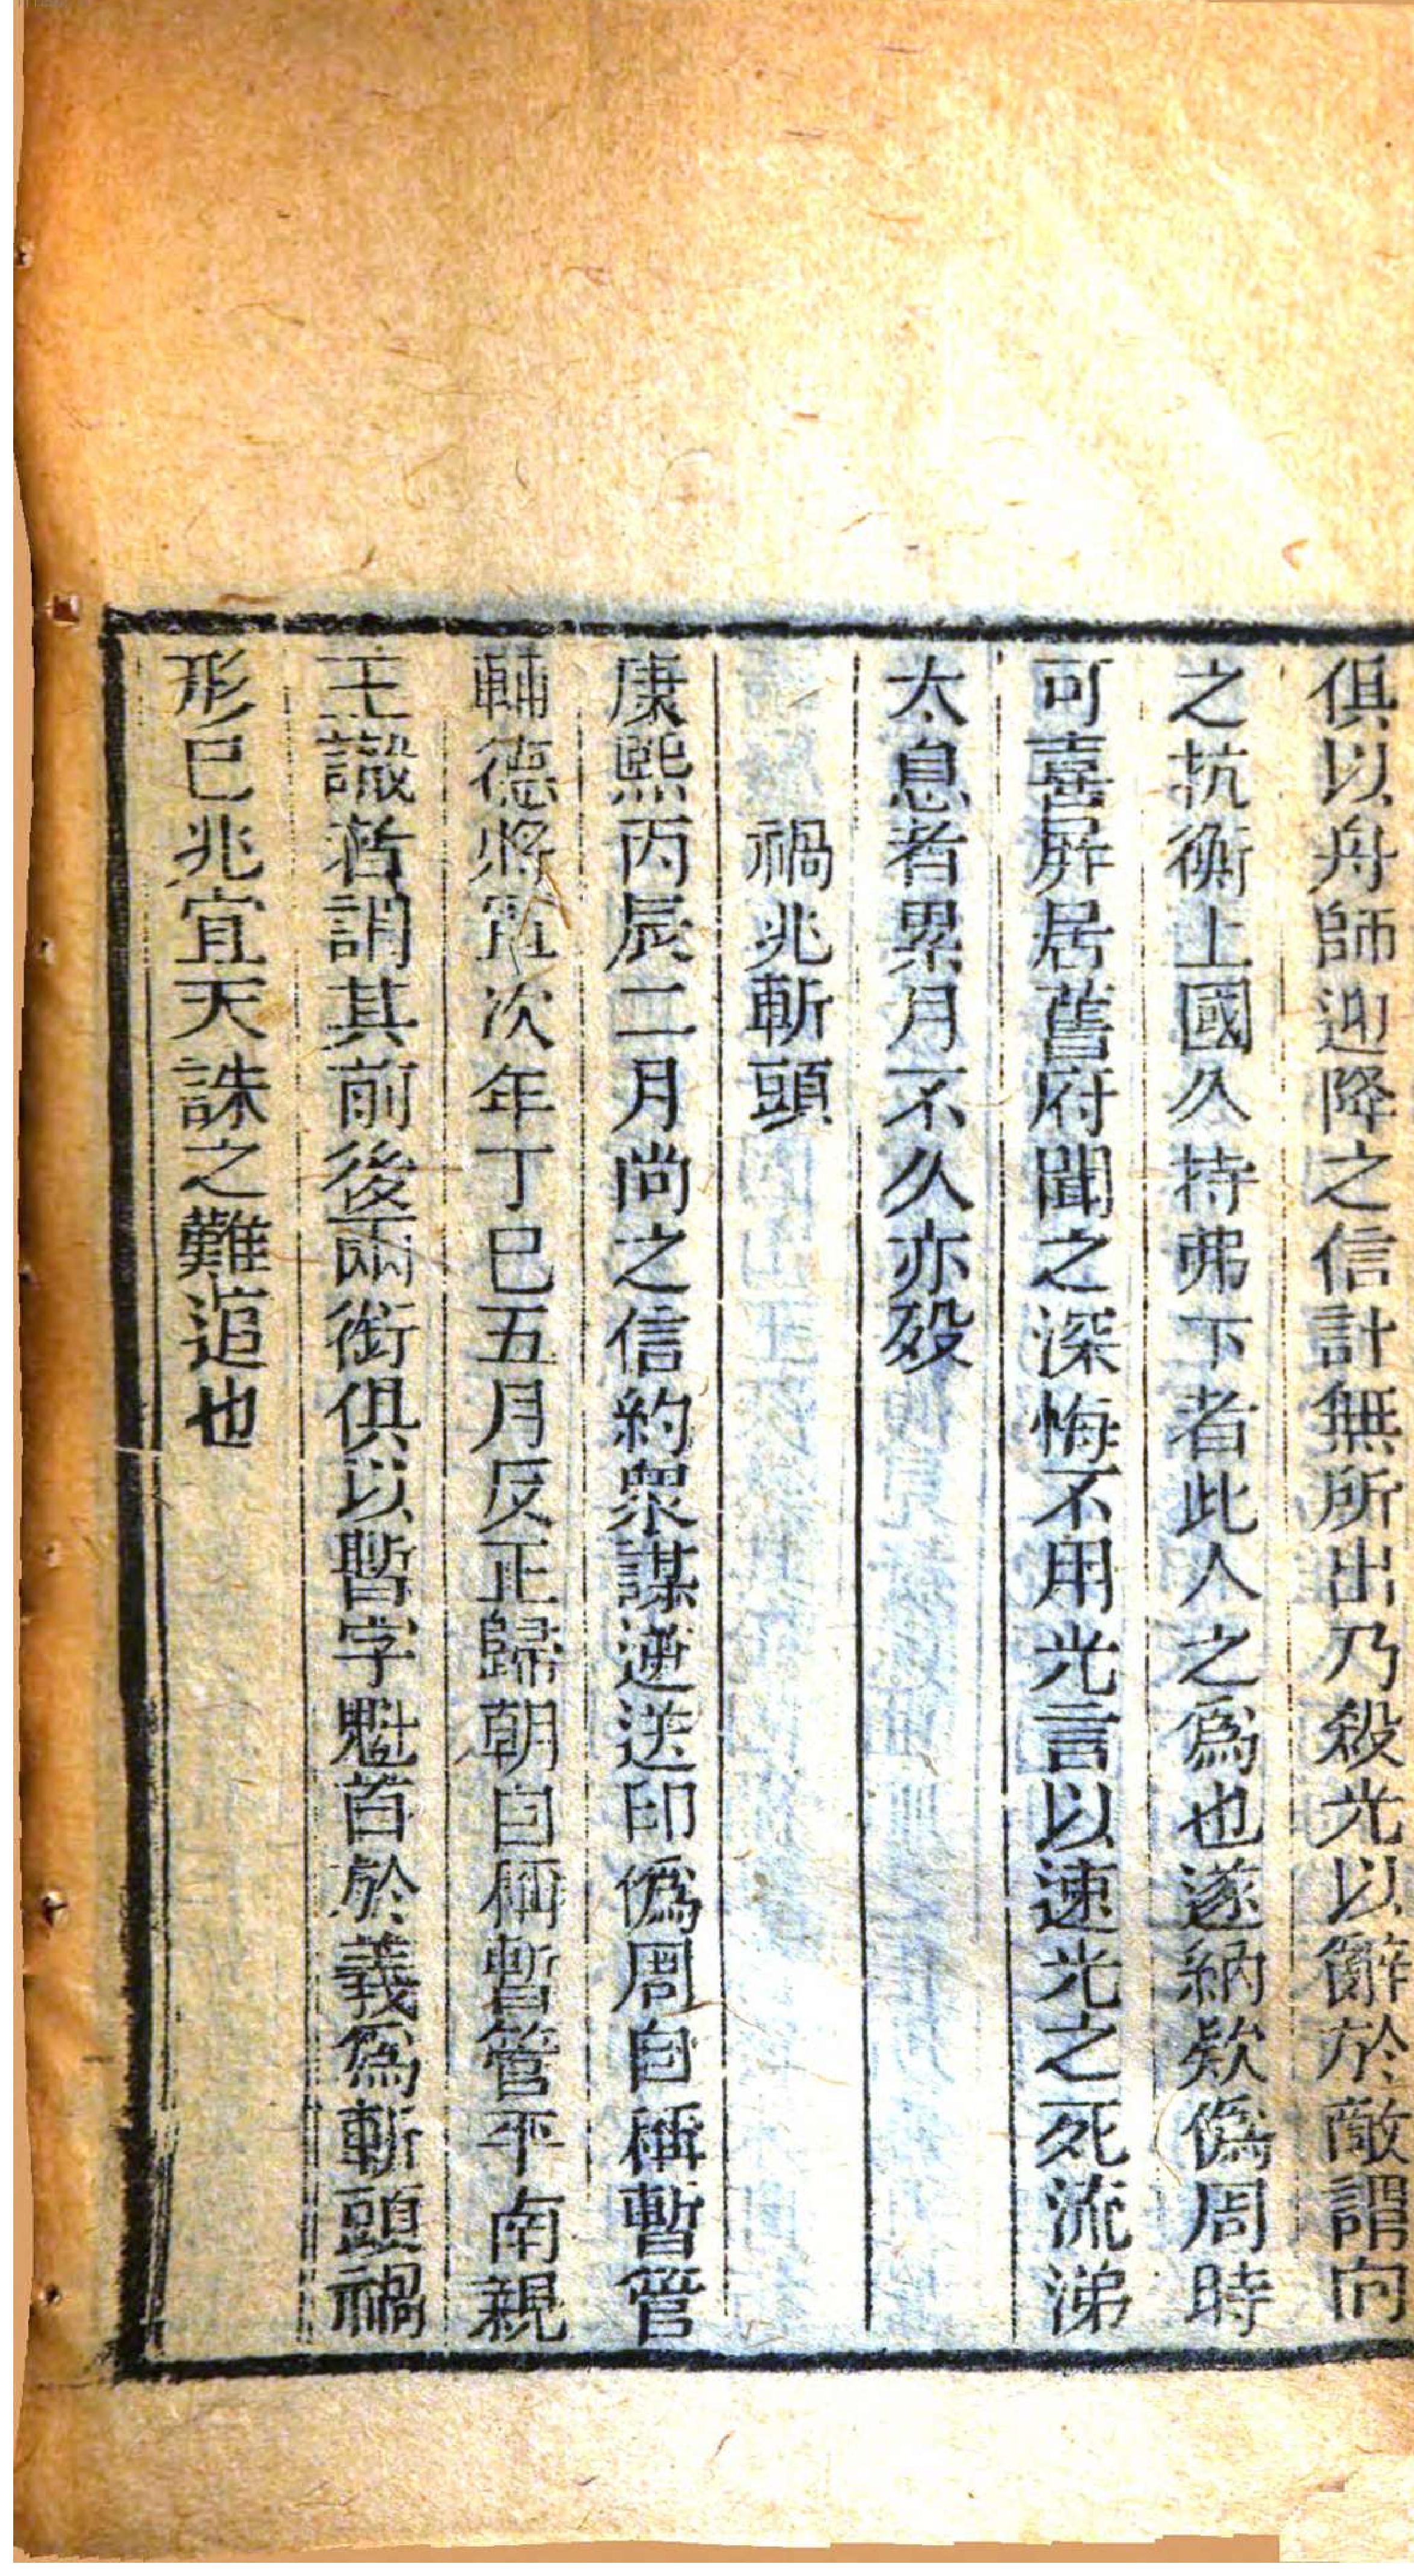 俱以舟師迎降之信計無所出乃殺光以辭於敵謂向
之抗衡上國久持弗下者此人之爲也遂納欵僞周時
可喜屛居舊府聞之深悔不用光言以速光之死流涕
太息者累月不久亦歿
禍兆斬頭
康熙丙辰二月尚之信約衆謀逆送印僞周自稱暫管
輔德將軍次年丁巳五月反正歸朝自稱暫管平南親
王識者謂其前後兩銜俱以暫字魁首於義爲斬頭禍
形已兆宜天誅之難逭也